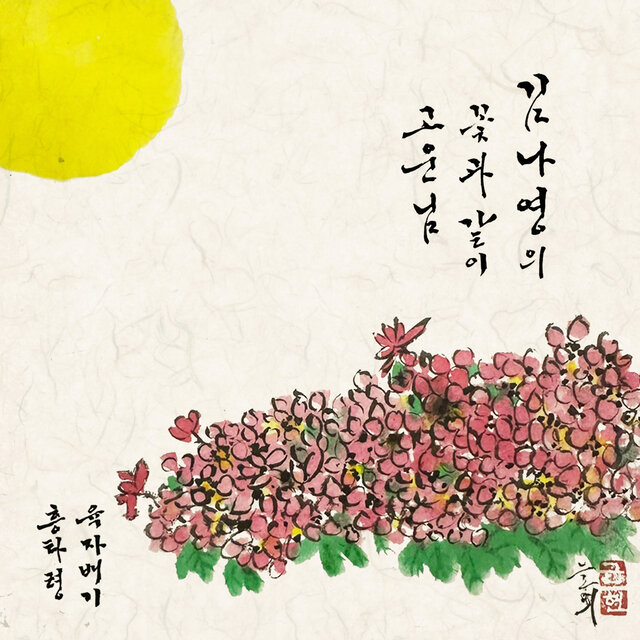 김나영의
꽃과 같이
고운님
육자배기
흥타령